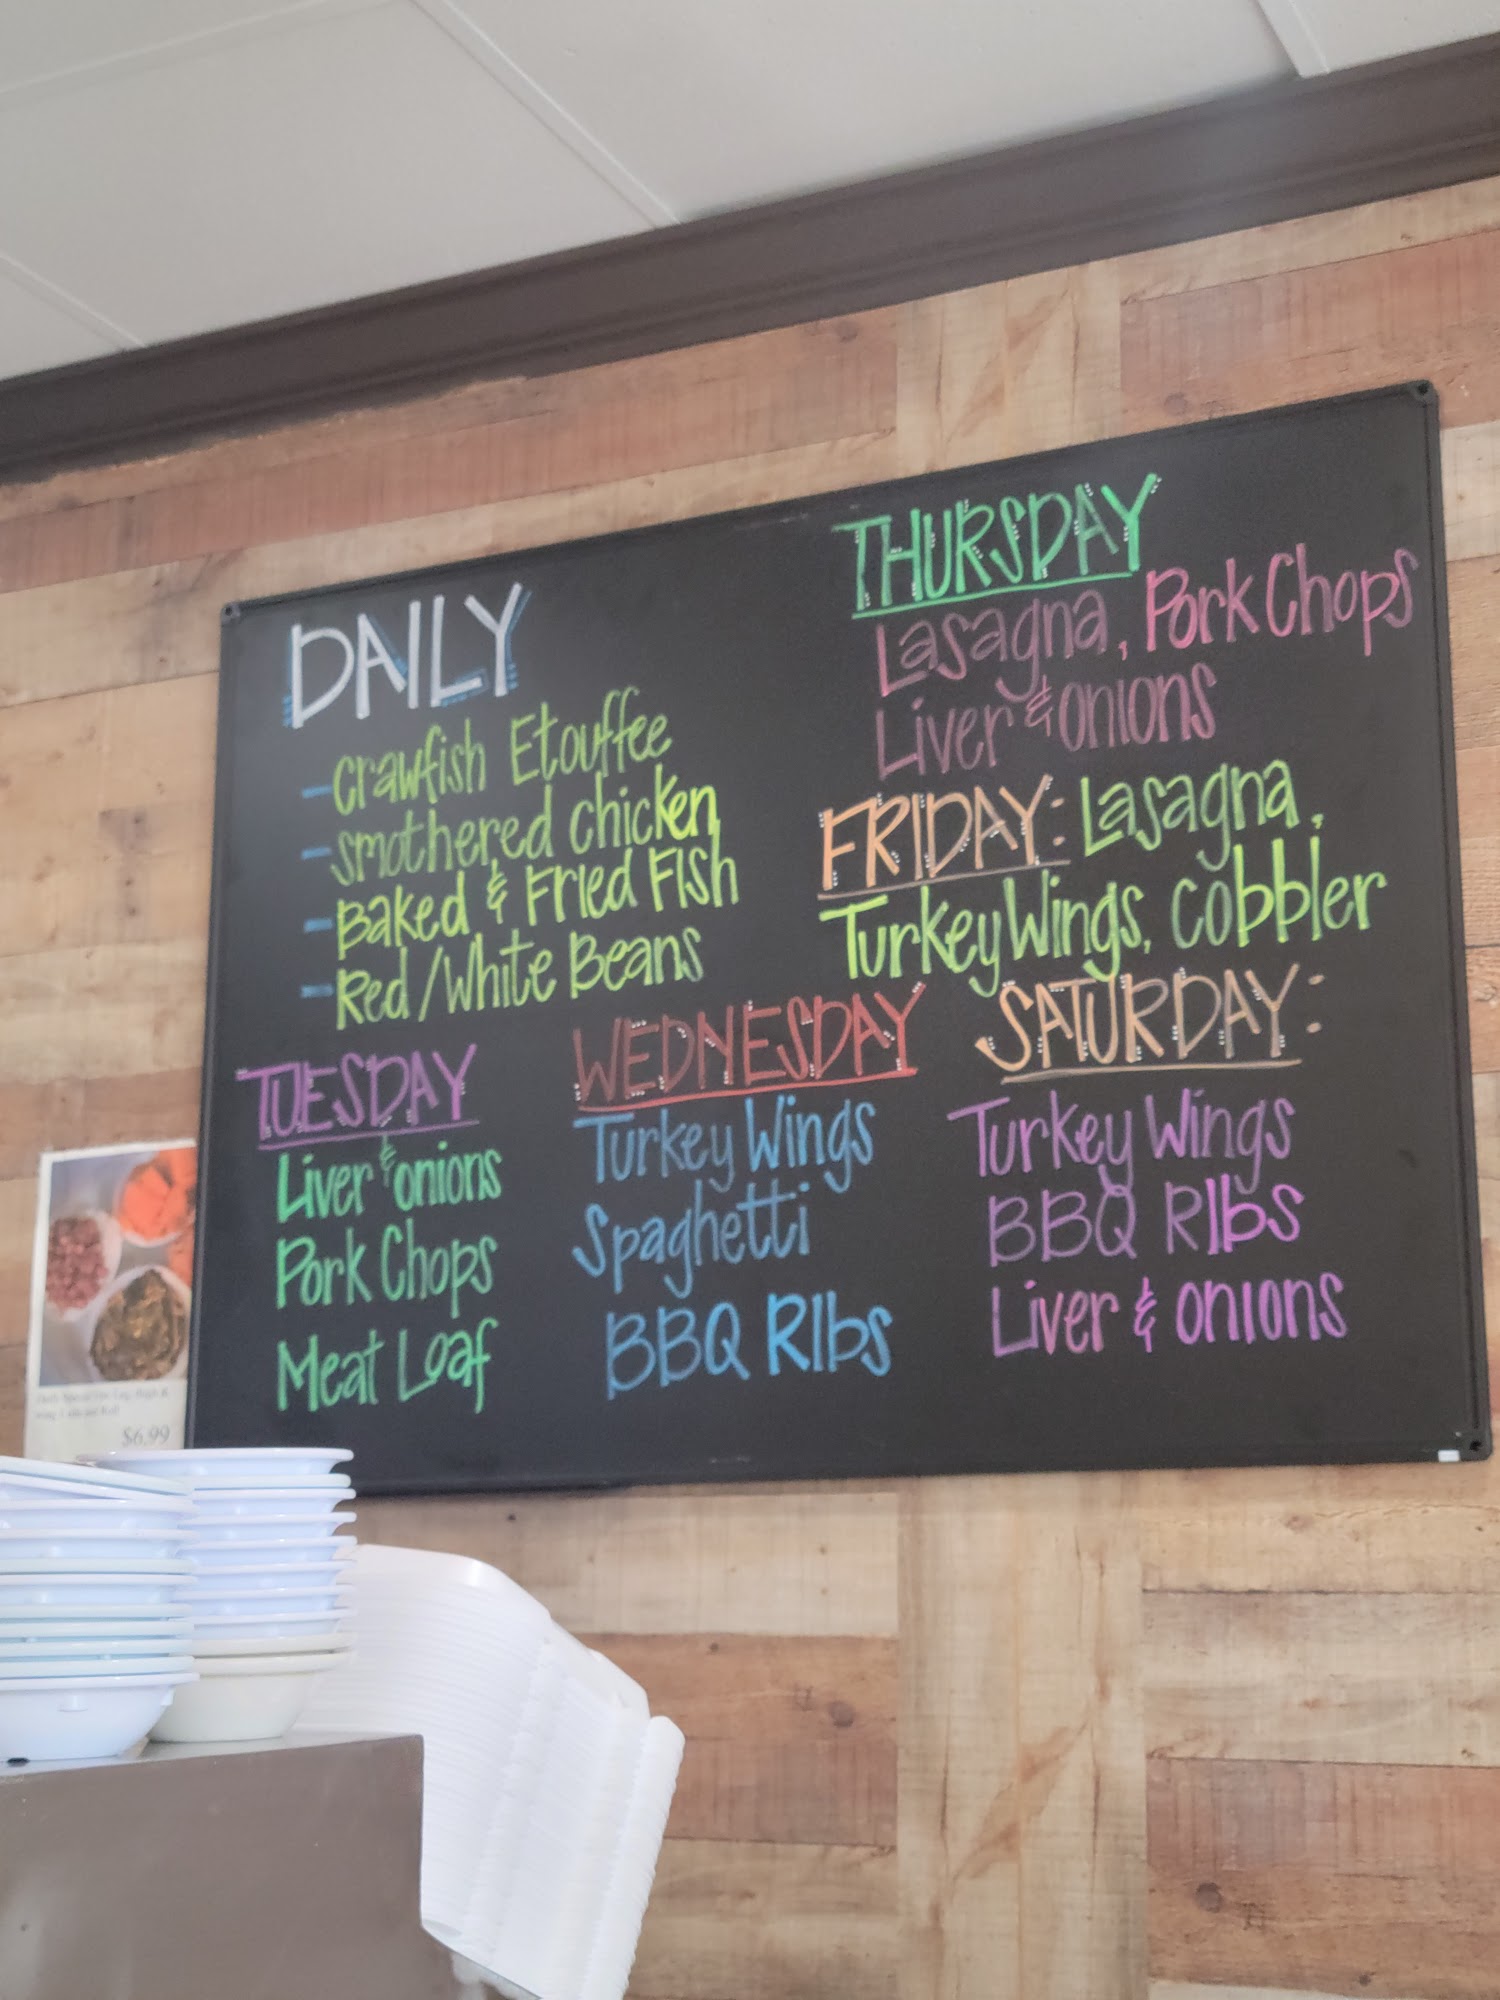 DAILY
- Crawfish Etouffee
- Smothered Chicken
- Baked & Fried Fish
- Red/White Beans
THURSDAY
Lasagna, Pork Chops
Liver & onions
FRIDAY: Lasagna,
Turkey Wings, Cobbler
TUESDAY
Liver & onions
Pork Chops
Meat Loaf
WEDNESDAY
Turkey Wings
Spaghetti
BBQ RIbs
SATURDAY:
Turkey Wings
BBQ RIbs
Liver & onions
$6.99